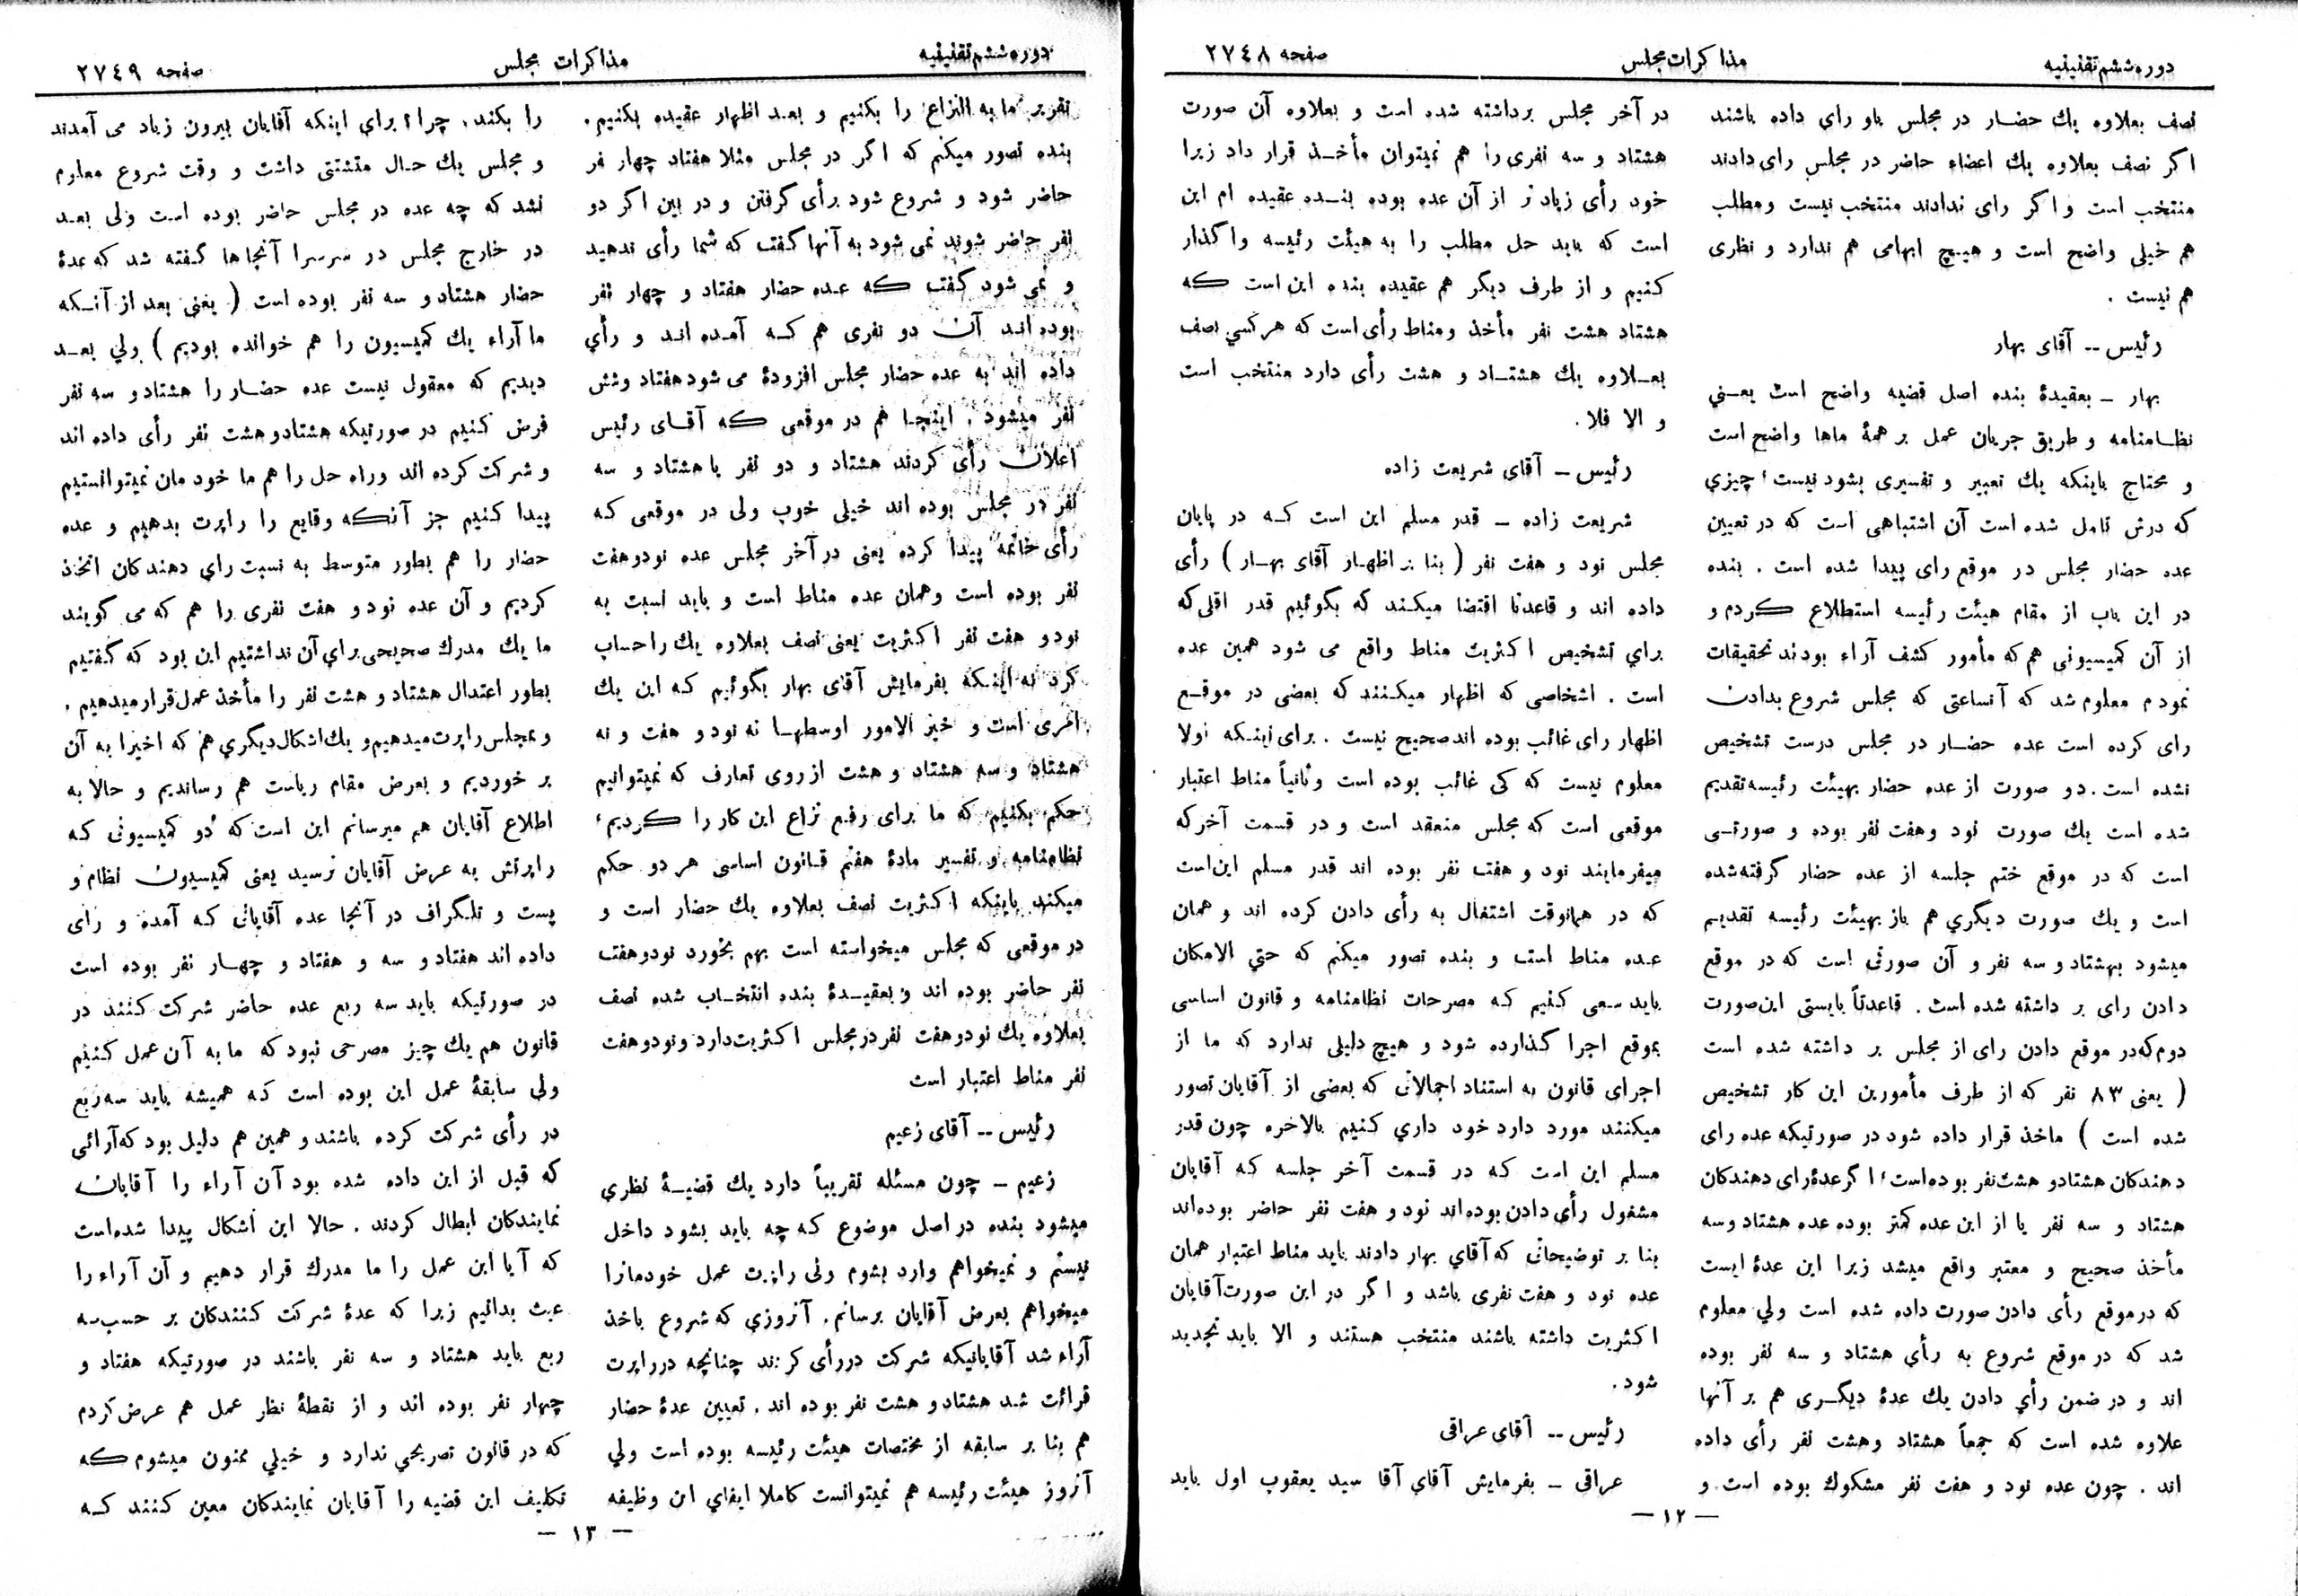 دوره ششم تقنینیه
مذاکرات مجلس
صفحه ۲۷۴۸
نصف بعلاوه يك حضار در مجلس باو رای داده باشند
اگر نصف بعلاوه يك اعضاء حاضر در مجلس رای دادند
منتخب است و اگر رای ندادند منتخب نیست ومطلب
هم خیلی واضح است و هیچ ابهامی هم ندارد و نظری
هم نیست .
رئیس -- آقای بهار
بهار - بعقیدهٔ بنده اصل قضیه واضح است یعني
نظامنامه و طریق جریان عمل بر همهٔ ماها واضح است
و محتاج باینکه يك تعبیر و تفسیری بشود نیست ، چیزي
که درش تامل شده است آن اشتباهی است که در تعیین
عده حضار مجلس در موقع رای پیدا شده است . بنده
در این باب از مقام هیئت رئیسه استطلاع کردم و
از آن کمیسیونی هم که مأمور کشف آراء بودند تحقیقات
نمودم معلوم شد که آنساعتی که مجلس شروع بدادن
رای کرده است عده حضار در مجلس درست تشخیص
نشده است . دو صورت از عده حضار بهیئت رئیسه تقدیم
شده است يك صورت نود وهفت نفر بوده و صورتی
است که در موقع ختم جلسه از عده حضار گرفته شده
است و يك صورت دیگري هم باز بهیئت رئیسه تقدیم
میشود بهشتاد و سه نفر و آن صورتی است که در موقع
دادن رای بر داشته شده است . قاعدتاً بایستی این صورت
دوم که در موقع دادن رای از مجلس بر داشته شده است
( یعنی ۸۳ نفر که از طرف مأمورین این کار تشخیص
شده است ) ماخذ قرار داده شود در صورتیکه عده رای
دهندکان هشتاد و هشت نفر بوده است ، اگر عدهٔ رای دهندکان
هشتاد و سه نفر یا از این عده کمتر بوده عده هشتاد وسه
مأخذ صحیح و معتبر واقع میشد زیرا این عدهٔ ایست
که در موقع رأی دادن صورت داده شده است ولي معلوم
شد که در موقع شروع به رأی هشتاد و سه نفر بوده
اند و در ضمن رأي دادن يك عدهٔ دیگری هم بر آنها
علاوه شده است که جمعاً هشتاد وهشت نفر رأی داده
اند . چون عده نود و هفت نفر مشكوك بوده است و
در آخر مجلس برداشته شده است و بعلاوه آن صورت
هشتاد و سه نفری را هم نمیتوان مأخذ قرار داد زیرا
خود رأی زیاد تر از آن عده بوده بنده عقیده ام این
است که باید حل مطلب را به هیئت رئیسه واگذار
کنیم و از طرف دیگر هم عقیده بنده این است که
هشتاد هشت نفر مأخذ ومناط رأی است که هر کسي نصف
بعلاوه يك هشتاد و هشت رأی دارد منتخب است
و الا فلا .
رئیس - آقای شریعت زاده
شریعت زاده - قدر مسلم این است که در پایان
مجلس نود و هفت نفر ( بنا بر اظهار آقای بهار ) رأی
داده اند و قاعدتا اقتضا میکند که بگوئیم قدر اقلی که
براي تشخیص اکثریت مناط واقع می شود همین عده
است . اشخاصی که اظهار میکنند که بعضی در موقع
اظهار رای غائب بوده اند صحیح نیست . برای اینکه اولا
معلوم نیست که کی غائب بوده است و ثانیاً مناط اعتبار
موقعی است که مجلس منعقد است و در قسمت آخر که
میفرمایند نود و هفت نفر بوده اند قدر مسلم این است
که در همانوقت اشتغال به رأی دادن کرده اند و همان
عده مناط است و بنده تصور میکنم که حتي الامکان
باید سعی کنیم که مصرحات نظامنامه و قانون اساسی
بموقع اجرا گذارده شود و هیچ دلیلی ندارد که ما از
اجرای قانون به استناد اجمالاتی که بعضی از آقایان تصور
میکنند مورد دارد خود داري کنیم بالاخره چون قدر
مسلم این است که در قسمت آخر جلسه که آقایان
مشغول رأی دادن بوده اند نود و هفت نفر حاضر بوده اند
بنا بر توضیحاتی که آقاي بهار دادند باید مناط اعتبار همان
عده نود و هفت نفری باشد و اگر در این صورت آقایان
اکثریت داشته باشند منتخب هستند و الا باید تجدید
شود .
رئیس -- آقای عراقی
عراقی - بفرمایش آقاي آقا سید یعقوب اول باید
— ۱۲ —
دوره ششم تقنینیه
مذاکرات مجلس
صفحه ۲۷٤۹
تقریر ما به النزاع را بکنیم و بعد اظهار عقیده بکنیم .
بنده تصور میکنم که اگر در مجلس مثلا هفتاد چهار نفر
حاضر شود و شروع شود برأی گرفتن و در بین اگر دو
نفر حاضر شوند نمی شود به آنها گفت که شما رأی ندهید
و نمی شود گفت که عده حضار هفتاد و چهار نفر
بوده اند آن دو نفری هم که آمده اند و رأي
داده اند به عده حضار مجلس افزودهٔ می شود هفتاد وشش
نفر میشود . اینجا هم در موقعی که آقای رئیس
اعلان رأی کردند هشتاد و دو نفر یا هشتاد و سه
نفر در مجلس بوده اند خیلی خوب ولی در موقعی که
رأی خاتمه پیدا کرده یعنی در آخر مجلس عده نود و هفت
نفر بوده است وهمان عده مناط است و باید نسبت به
نود و هفت نفر اکثریت یعنی نصف بعلاوه يك را حساب
کرد نه اینکه بفرمایش آقای بهار بگوئیم که این يك
امری است و خیر الامور اوسطها نه نود و هفت و نه
هشتاد و سه هشتاد و هشت از روی تعارف که نمیتوانیم
حکم بکنیم که ما برای رفع نزاع این کار را کردیم ،
نظامنامه و تفسیر مادهٔ هفتم قانون اساسی هر دو حکم
میکند باینکه اکثریت نصف بعلاوه يك حضار است و
در موقعی که مجلس میخواسته است بهم بخورد نود و هفت
نفر حاضر بوده اند و بعقیدهٔ بنده انتخاب شده نصف
بعلاوه يك نود و هفت نفر در مجلس اکثریت دارد و نود و هفت
نفر مناط اعتبار است
رئیس -- آقای زعیم
زعیم - چون مسئله تقریباً دارد يك قضیهٔ نظري
میشود بنده در اصل موضوع که چه باید بشود داخل
نیستم و نمیخواهم وارد بشوم ولی راپرت عمل خودمانرا
میخواهم بعرض آقایان برسانم . آنروزي که شروع باخذ
آراء شد آقایانیکه شرکت در رأی کردند چنانچه در راپرت
قرائت شد هشتاد و هشت نفر بوده اند . تعیین عدهٔ حضار
هم بنا بر سابقه از مختصات هیئت رئیسه بوده است ولي
آنروز هیئت رئیسه هم نمیتوانست کاملا ایفاي این وظیفه
را بکند . چرا ؟ براي اینکه آقایان بیرون زیاد می آمدند
و مجلس يك حال متشتتی داشت و وقت شروع معلوم
نشد که چه عده در مجلس حاضر بوده است ولی بعد
در خارج مجلس در سرسرا آنجاها گفته شد که عدهٔ
حضار هشتاد و سه نفر بوده است ( یعنی بعد از آنکه
ما آراء يك کمیسیون را هم خوانده بودیم ) ولي بعد
دیدیم که معقول نیست عده حضار را هشتاد و سه نفر
فرض کنیم در صورتیکه هشتاد و هشت نفر رأی داده اند
و شرکت کرده اند وراه حل را هم ما خود مان نمیتوانستیم
پیدا کنیم جز آنکه وقایع را راپرت بدهیم و عده
حضار را هم بطور متوسط به نسبت راي دهندکان اتخاذ
کردیم و آن عده نود و هفت نفری را هم که می گویند
ما يك مدرك صحیحی براي آن نداشتیم این بود که گفتیم
بطور اعتدال هشتاد و هشت نفر را مأخذ عمل قرار میدهیم .
و بمجلس راپرت میدهیم و يك اشکال دیگري هم که اخیرا به آن
بر خوردیم و بعرض مقام ریاست هم رساندیم و حالا به
اطلاع آقایان هم میرسانم این است که دو کمیسیونی که
راپرتش به عرض آقایان نرسید یعنی کمیسیون نظام و
پست و تلگراف در آنجا عده آقایانی که آمده و رای
داده اند هفتاد و سه و هفتاد و چهار نفر بوده است
در صورتیکه باید سه ربع عده حاضر شرکت کنند در
قانون هم يك چیز مصرحی نبود که ما به آن عمل کنیم
ولی سابقهٔ عمل این بوده است که همیشه باید سه ربع
در رأی شرکت کرده باشند و همین هم دلیل بود که آرائی
که قبل از این داده شده بود آن آراء را آقایان
نمایندکان ابطال کردند . حالا این اشکال پیدا شده است
که آیا این عمل را ما مدرك قرار دهیم و آن آراء را
عبث بدانیم زیرا که عدهٔ شرکت کنندکان بر حسب سه
ربع باید هشتاد و سه نفر باشند در صورتیکه هفتاد و
چهار نفر بوده اند و از نقطهٔ نظر عمل هم عرض کردم
که در قانون تصریحي ندارد و خیلي ممنون میشوم که
تکلیف این قضیه را آقایان نمایندکان معین کنند که
— ۱۳ —